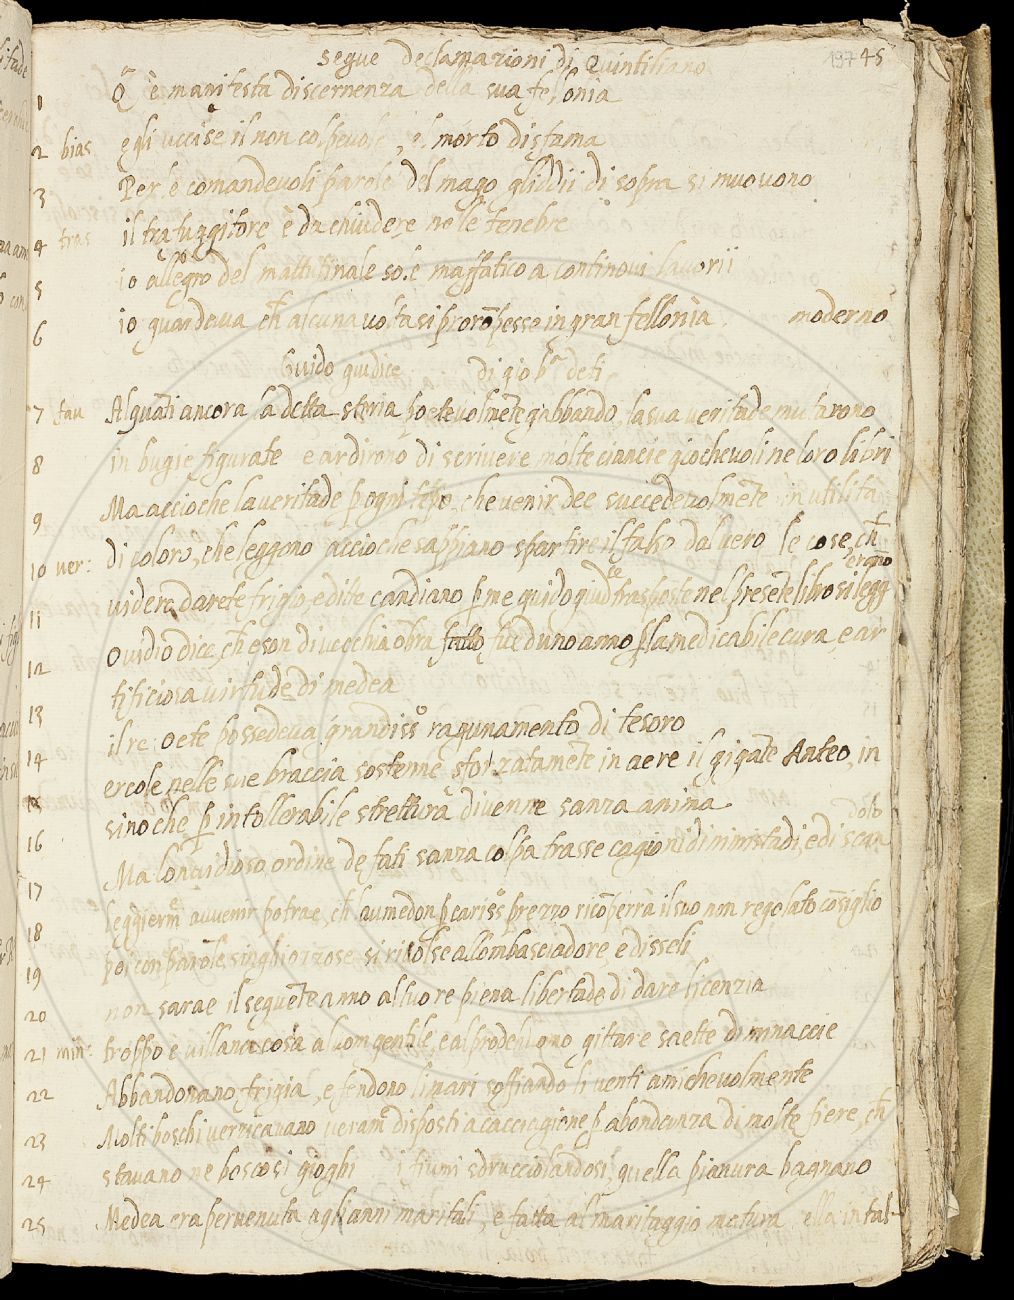 segue declamazioni di Quintiliano
197 45
1 Q̃ è manifesta discernenza della sua fellonia
2 bias egli uccise il non colpevole, el morto disfama
3 Per le comandevoli parole del mago gliddii di sopra si muovono
4 tras il trafuggitore è da chiudere ne le tenebre
5 io allegro del mattutinale so. e maffatico a continovi lavorii
6 io guardava ch̃ alcuna volta si prorõpesse in gran fellonia. moderno
Guido giudice di gio b.ª deti
7 fav Alquãti ancora la detta storia poetevolmẽte gabbando, la sua veritade mutarono
8 in bugie figurate e ardirono di scrivere molte ciancie giochevoli ne loro libri
9 Ma accioche la veritade p ogni tẽpo, che venir dee succedevolmẽte in utilità
10 ver: di coloro, che leggono accioche sappiano spartire il falso dal vero le cose, ch̃
11 videro darete frigio, e dite candiano p me guido giudce trasposte nel presẽte libro si legg
erãno
12 Ovidio dice, ch̃ eson di vecchia õbra fatto fue duno anno p la medicabile cura, e ar
13 tificiosa virtude di medea
14 il re Oete possedeva grandissº ragunamento di tesoro
15 ercole nelle sue braccia sostenne sforzatamẽte in aere il gigãte Anteo, in
16 sino che p intollerabile strettura divenne sanza anima
dolo
17 Ma lonvidioso ordine de fati sanza colpa trasse cagioni di nimistadi, e di scan
18 leggierm.e avvenir potrae, ch̃ laumedon p cariss.º prezzo ricõperrà il suo non regolato cõsiglio
19 poi con parole singhiozzose si rivolse allombasciadore, e disseli
20 non sarae il seguẽte anno al tuo re piena libertade di dare licenzia
21 min: troppo è villana cosa a luom gentile, e al prode huomo gittare saette di minaccie
22 Abbandonano frigia, e fendono li mari soffiando li venti amichevolmente
23 Molti boschi verzicavano veram.e disposti a cacciagione p abondanza di molte fiere, ch̃
24 stavano ne boscosi gioghi i fiumi sdrucciolandosi, quella pianura bagnano
25 Medea era pervenuta agli anni maritali, e fatta al maritaggio matura ella in tal-